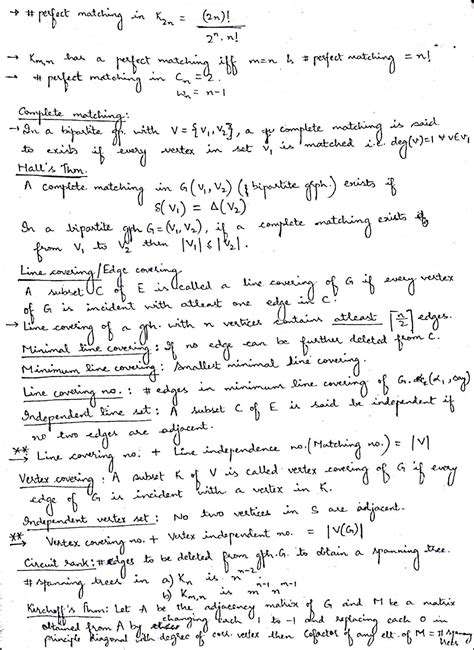 → # perfect matching in K2n = (2n)! / 2^n . n!
→ Km,n has a perfect matching iff m=n & # perfect matching = n!
→ # perfect matching in Cn = 2.
Wn = n-1
Complete matching:
→ In a bipartite gr. with V = {V1, V2}, a complete matching is said
to exists if every vertex in set V1 is matched i.e. deg(v)=1 ∀ v∈V1
Hall's Thm.
A complete matching in G(V1, V2) (bipartite gph.) exists if
δ(V1) = Δ(V2)
In a bipartite gph G=(V1, V2), if a complete matching exists
from V1 to V2 then |V1| ≤ |V2|.
Line covering/Edge covering.
A subset C of E is called a line covering of G if every vertex
of G is incident with atleast one edge in C.
→ Line covering of a gph. with n vertices contains atleast ⌈n/2⌉ edges.
Minimal line covering: If no edge can be further deleted from C.
Minimum line covering: Smallest minimal line covering.
Line covering no.: # edges in minimum line covering of G. (α1, say)
Independent line set: A subset C of E is said be independent if
no two edges are adjacent.
** → Line covering no. + Line independence no. (Matching no.) = |V|
Vertex covering: A subset K of V is called vertex covering of G if every
edge of G is incident with a vertex in K.
Independent vertex set: No two vertices in S are adjacent.
** → Vertex covering no. + Vertex independent no. = |V(G)|
Circuit rank: # edges to be deleted from gph. G. to obtain a spanning tree.
# spanning trees in a) Kn is n^n-2
b) Km,n is m^n-1 n^m-1
Kirchoff's Thm: Let A be the adjacency matrix of G and M be a matrix
obtained from A by changing each 1 to -1 and replacing each 0 in
principle diagonal with degree of corr. vertex then Cofactor of any elt. of M = # spang trees